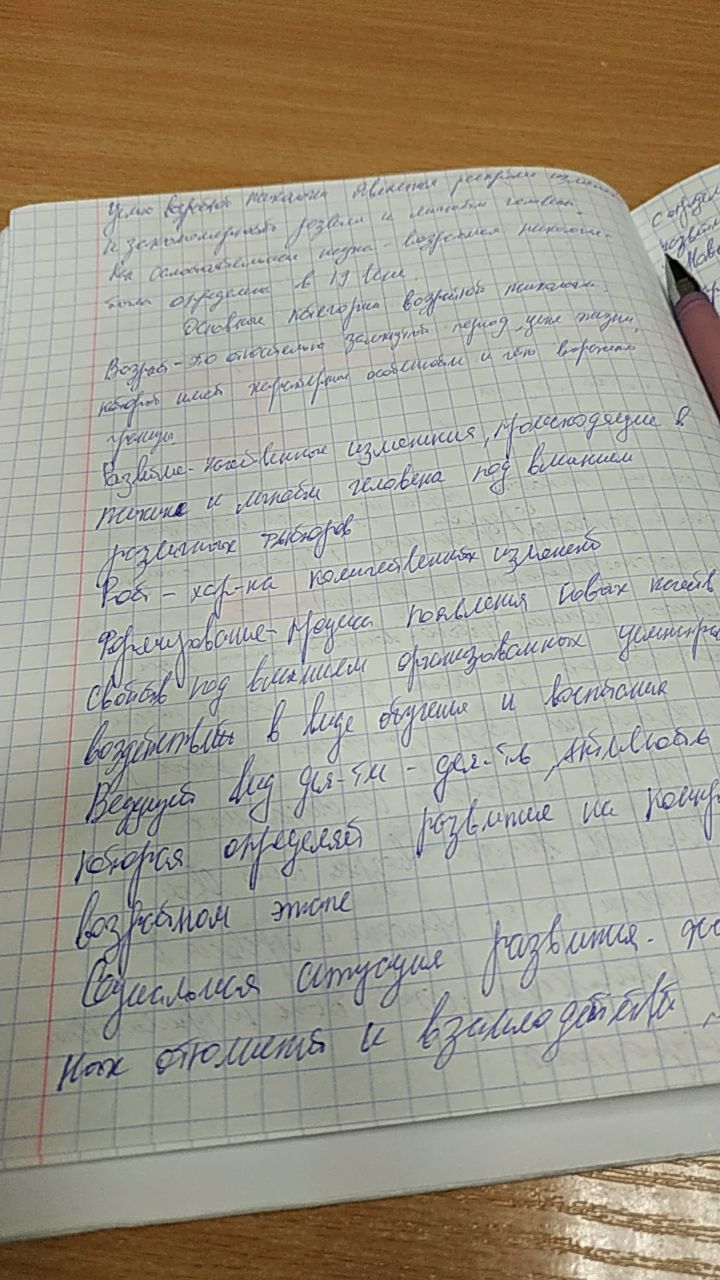 Целью возрастной психологии является раскрытие
и закономерность развит и личности человека.
Как самостоятельная наука - возрастная психология
была определена в 19 веке.
Основные категории возрастной психологии.
Возраст - это относительно замкнутый период, цикл жизни,
который имеет характерные особенности и
границы
Развитие - качественные изменения, происходящие в
психике и личности человека под влиянием
различных факторов
Рост - хар-ка количественных изменений
Формирование - процесс появления новых качеств
свойств под влиянием организованных
воздействий в виде обучения и воспитания
Ведущий вид дея-ти - дея-ть, активность
которая определяет развитие на
возрастном этапе
Социальная ситуация развития -
ных отношений и взаимодействий
с опреде
развит
Нов